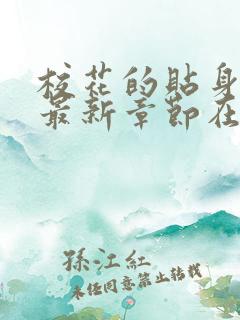 校花的贴身
最新章节在
孙江红
未经同意禁止转载